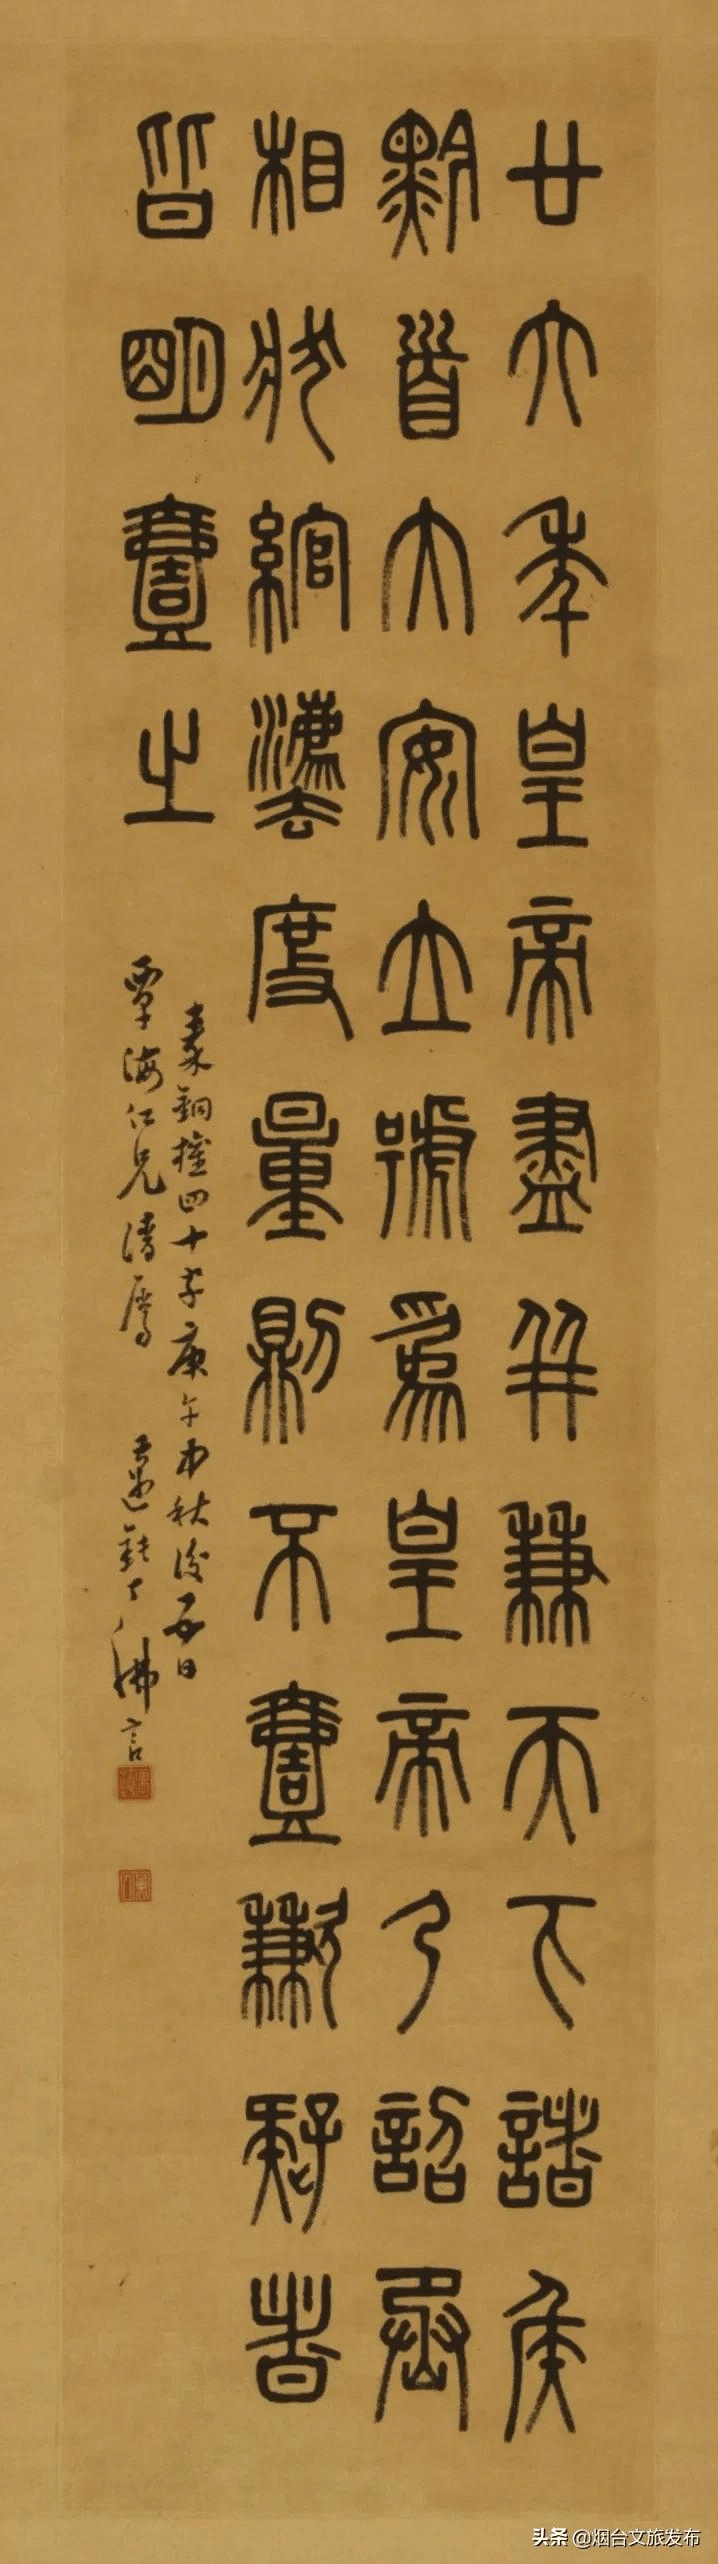 廿六年皇帝盡并兼天下諸侯
黔首大安立號爲皇帝乃詔丞
相狀綰灋度量則不壹歉疑者
皆明壹之
秦銅權四十字庚午中秋後五日
覃海仁兄清屬
邁鈍丁佛言
头条 @烟台文旅发布